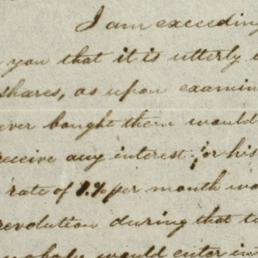 I am exceeding
you that it is utterly
shares, as upon examin
ever bought them would
receive any interest for his
rate of 1.% per month wo
revolution during that t
would enter in